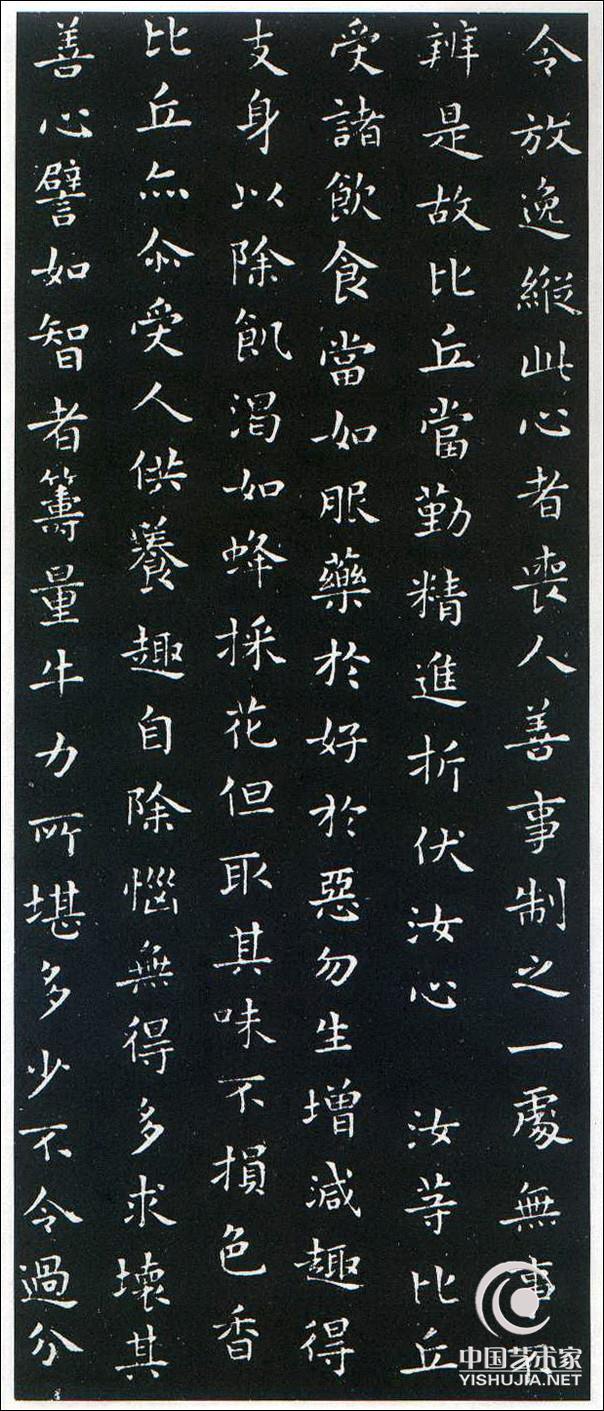 令放逸縱此心者喪人善事制之一處無事
辨是故比丘當勤精進折伏汝心　汝等比丘
受諸飲食當如服藥於好於惡勿生增減趣得
支身以除飢渴如蜂採花但取其味不損色香
比丘亦尒受人供養趣自除惱無得多求壞其
善心譬如智者籌量牛力所堪多少不令過分
中国艺术家
YISHUJIA.NET